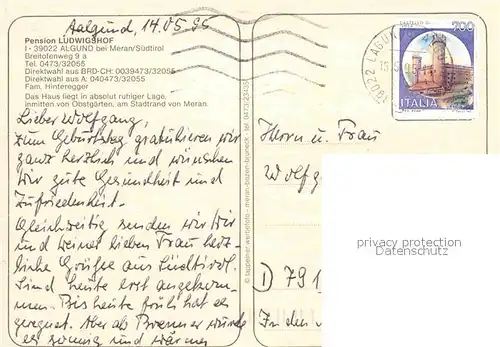 Aalgund, 14.05.95
Pension LUDWIGSHOF
I - 39022 ALGUND bei Meran/Südtirol
Breitofenweg 9 a
Tel. 0473/32055
Direktwahl aus BRD-CH: 0039473/32055
Direktwahl aus A: 040473/32055
Fam. Hinteregger
Das Haus liegt in absolut ruhiger Lage,
inmitten von Obstgärten, am Stadtrand von Meran.
Lieber Wolfgang,
zum Geburtstag gratulieren wir
ganz herzlich und wünschen
wir gute Gesundheit und
Zufriedenheit.
Gleichzeitig senden wir Dir
und Deiner lieben Frau herz-
liche Grüße aus Südtirol.
Sind heute erst angekom-
men. Bis heute früh hat es
geregnet. Aber ab Brenner wurde
es sonnig und wärmer
© tappeiner werbefoto - meran-bozen-bruneck - tel. 0473/23435
39022 LAGUN
700
ITALIA
Herrn u. Frau
Wolfg
D 791
In den
privacy protection
Datenschutz